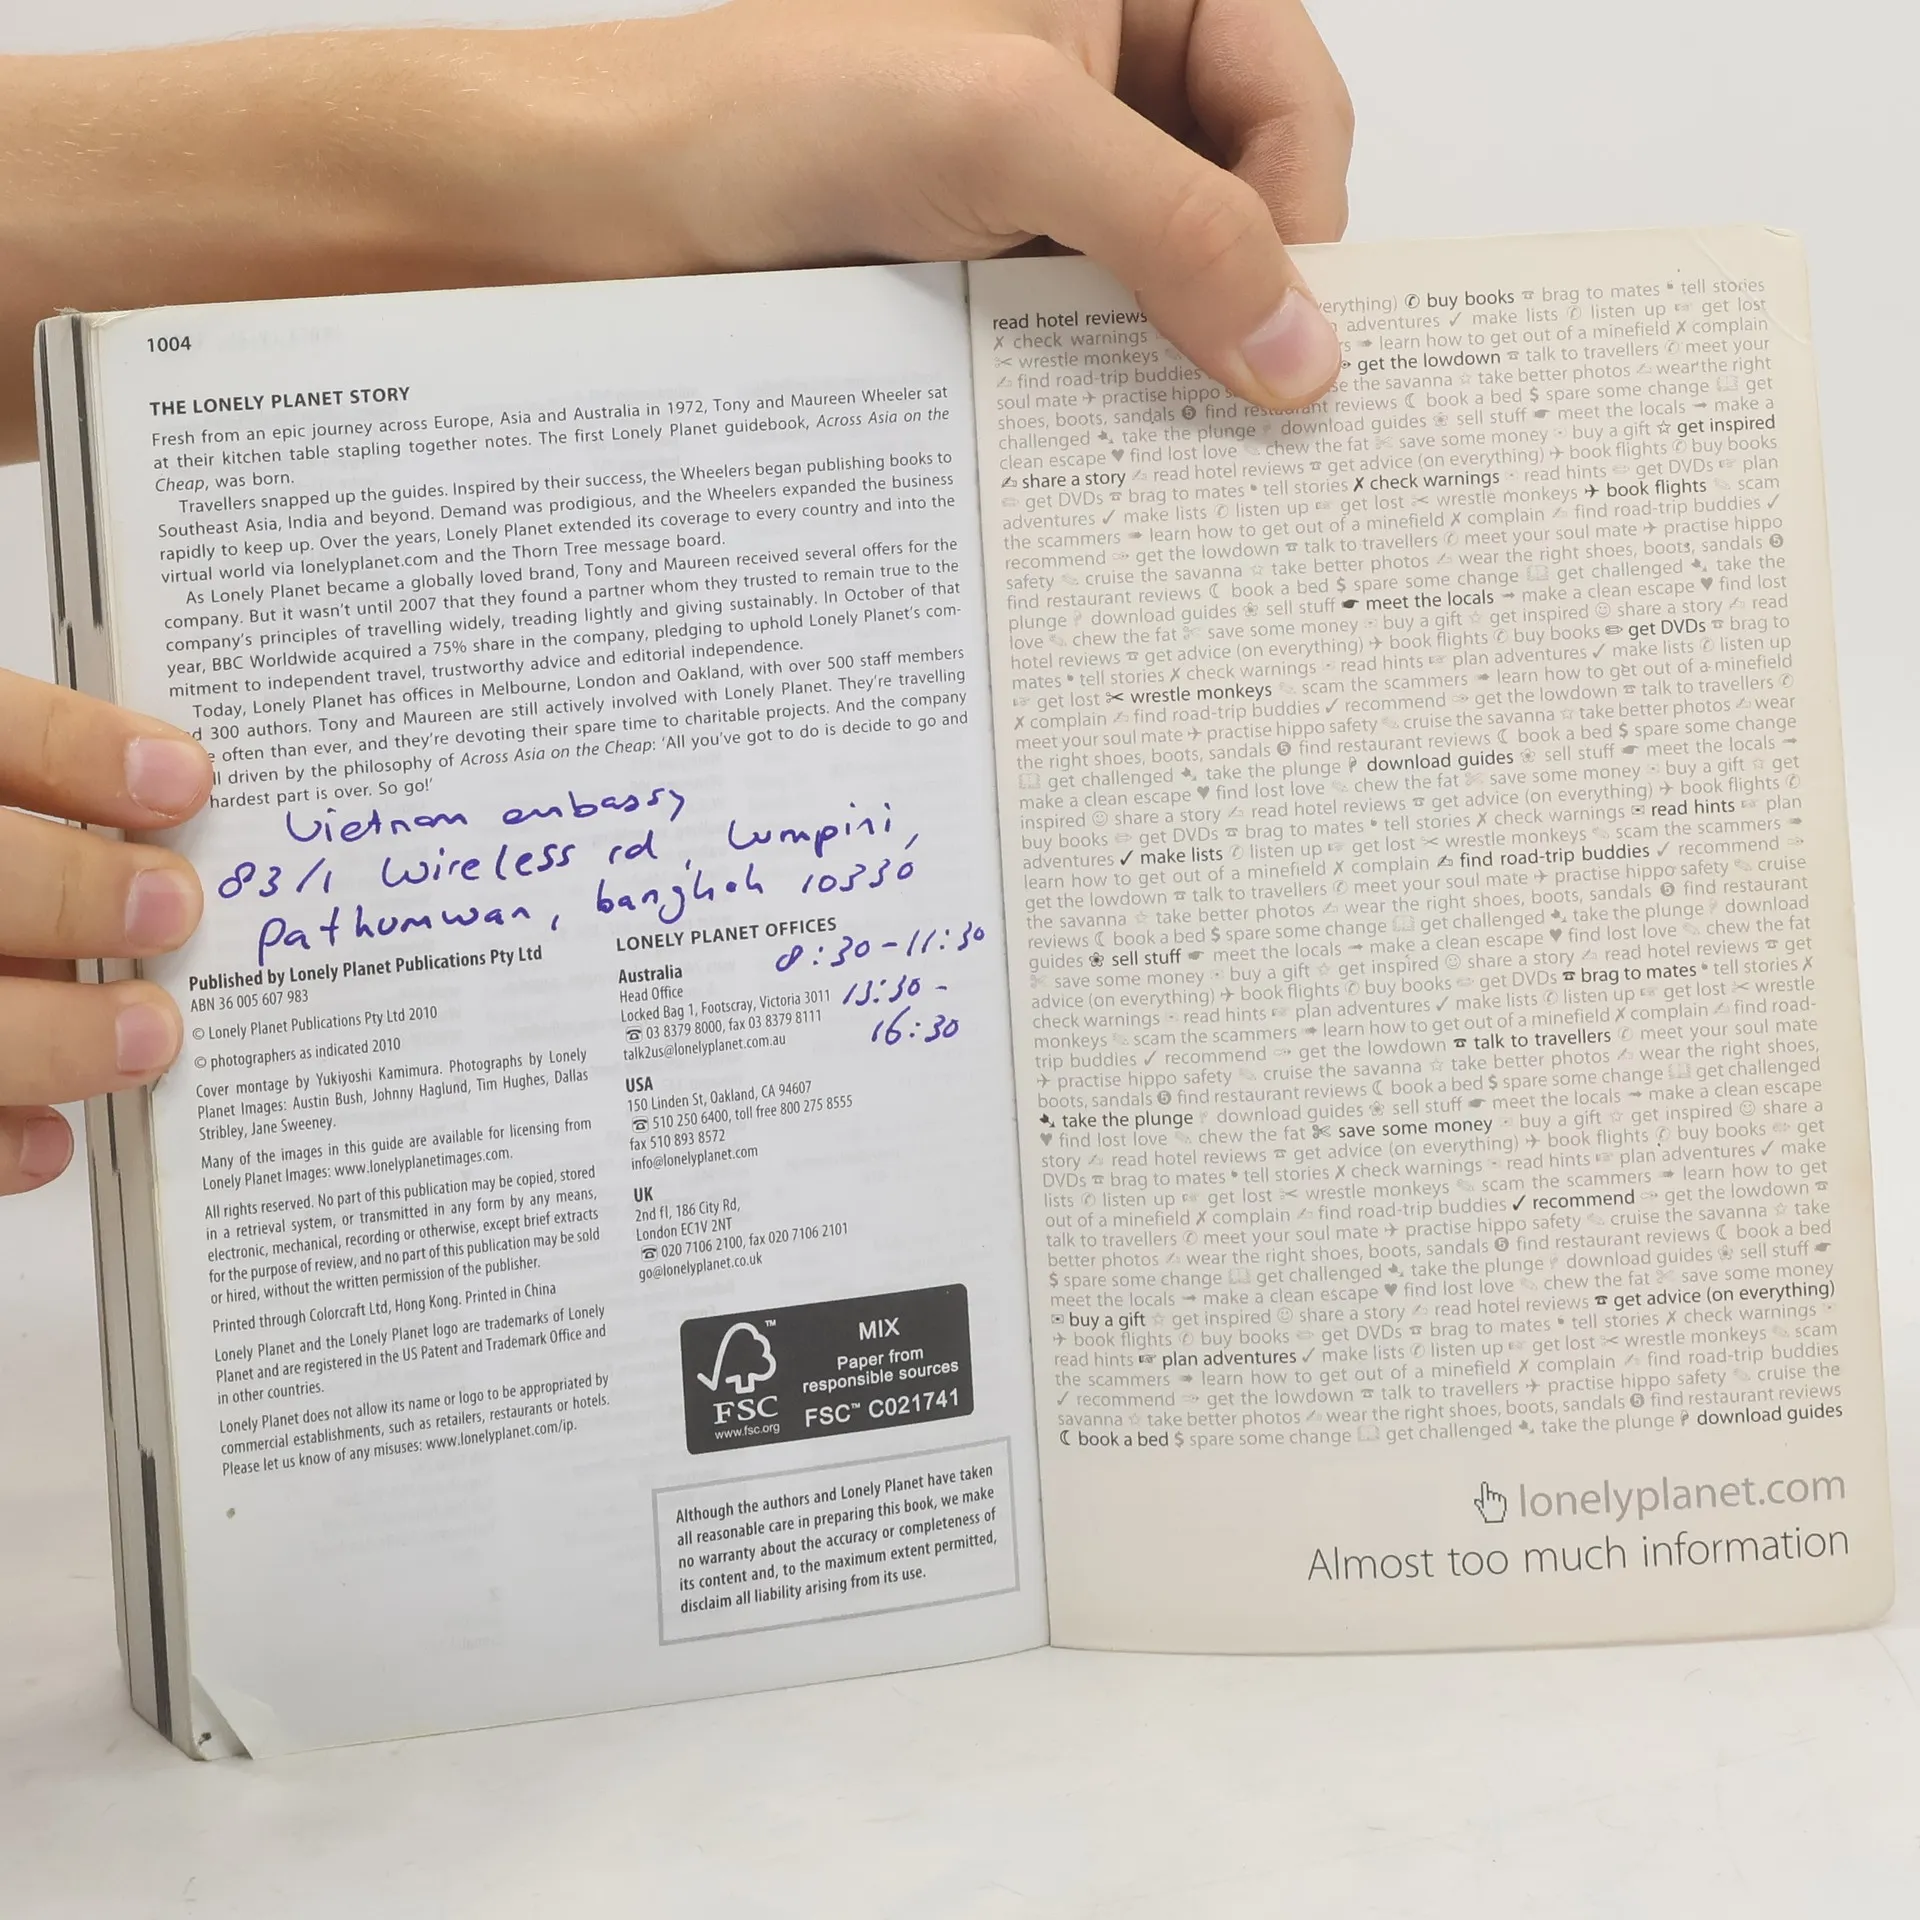 1004
THE LONELY PLANET STORY
Fresh from an epic journey across Europe, Asia and Australia in 1972, Tony and Maureen Wheeler sat
at their kitchen table stapling together notes. The first Lonely Planet guidebook, Across Asia on the
Cheap, was born.
Travellers snapped up the guides. Inspired by their success, the Wheelers began publishing books to
Southeast Asia, India and beyond. Demand was prodigious, and the Wheelers expanded the business
rapidly to keep up. Over the years, Lonely Planet extended its coverage to every country and into the
virtual world via lonelyplanet.com and the Thorn Tree message board.
As Lonely Planet became a globally loved brand, Tony and Maureen received several offers for the
company. But it wasn't until 2007 that they found a partner whom they trusted to remain true to the
company's principles of travelling widely, treading lightly and giving sustainably. In October of that
year, BBC Worldwide acquired a 75% share in the company, pledging to uphold Lonely Planet's com-
mitment to independent travel, trustworthy advice and editorial independence.
Today, Lonely Planet has offices in Melbourne, London and Oakland, with over 500 staff members
300 authors. Tony and Maureen are still actively involved with Lonely Planet. They're travelling
often than ever, and they're devoting their spare time to charitable projects. And the company
driven by the philosophy of Across Asia on the Cheap: 'All you've got to do is decide to go and
hardest part is over. So go!'
Vietnam embassy
83/1 Wireless rd, Lumpini,
Pathumwan, bangkok 10330
Published by Lonely Planet Publications Pty Ltd
ABN 36 005 607 983
© Lonely Planet Publications Pty Ltd 2010
© photographers as indicated 2010
Cover montage by Yukiyoshi Kamimura. Photographs by Lonely
Planet Images: Austin Bush, Johnny Haglund, Tim Hughes, Dallas
Stribley, Jane Sweeney.
Many of the images in this guide are available for licensing from
Lonely Planet Images: www.lonelyplanetimages.com.
All rights reserved. No part of this publication may be copied, stored
in a retrieval system, or transmitted in any form by any means,
electronic, mechanical, recording or otherwise, except brief extracts
for the purpose of review, and no part of this publication may be sold
or hired, without the written permission of the publisher.
Printed through Colorcraft Ltd, Hong Kong. Printed in China
Lonely Planet and the Lonely Planet logo are trademarks of Lonely
Planet and are registered in the US Patent and Trademark Office and
in other countries.
Lonely Planet does not allow its name or logo to be appropriated by
commercial establishments, such as retailers, restaurants or hotels.
Please let us know of any misuses: www.lonelyplanet.com/ip.
LONELY PLANET OFFICES
8:30-11:30
13:30-
16:30
Australia
Head Office
Locked Bag 1, Footscray, Victoria 3011
☎ 03 8379 8000, fax 03 8379 8111
talk2us@lonelyplanet.com.au
USA
150 Linden St, Oakland, CA 94607
☎ 510 250 6400, toll free 800 275 8555
fax 510 893 8572
info@lonelyplanet.com
UK
2nd fl, 186 City Rd,
London EC1V 2NT
☎ 020 7106 2100, fax 020 7106 2101
go@lonelyplanet.co.uk
FSC™
www.fsc.org
MIX
Paper from
responsible sources
FSC™ C021741
Although the authors and Lonely Planet have taken
all reasonable care in preparing this book, we make
no warranty about the accuracy or completeness of
its content and, to the maximum extent permitted,
disclaim all liability arising from its use.
read hotel reviews buy books brag to mates tell stories
check warnings adventures make lists listen up get lost
wrestle monkeys learn how to get out of a minefield complain
find road-trip buddies get the lowdown talk to travellers meet your
soul mate practise hippo the savanna take better photos wear the right
shoes, boots, sandals find restaurant reviews book a bed $ spare some change get
challenged take the plunge download guides sell stuff meet the locals make a
clean escape find lost love chew the fat save some money buy a gift get inspired
share a story read hotel reviews get advice (on everything) book flights buy books
get DVDs brag to mates tell stories check warnings read hints get DVDs plan
adventures make lists listen up get lost wrestle monkeys book flights scam
the scammers learn how to get out of a minefield complain find road-trip buddies
recommend get the lowdown talk to travellers meet your soul mate practise hippo
safety cruise the savanna take better photos wear the right shoes, boots, sandals
find restaurant reviews book a bed $ spare some change get challenged take the
plunge download guides sell stuff meet the locals make a clean escape find lost
love chew the fat save some money buy a gift get inspired share a story read
hotel reviews get advice (on everything) book flights buy books get DVDs brag to
mates tell stories check warnings read hints plan adventures make lists listen up
get lost wrestle monkeys scam the scammers learn how to get out of a minefield
complain find road-trip buddies recommend get the lowdown talk to travellers
meet your soul mate practise hippo safety cruise the savanna take better photos wear
the right shoes, boots, sandals find restaurant reviews book a bed $ spare some change
get challenged take the plunge download guides sell stuff meet the locals
make a clean escape find lost love chew the fat save some money buy a gift get
inspired share a story read hotel reviews get advice (on everything) book flights
buy books get DVDs brag to mates tell stories check warnings read hints plan
adventures make lists listen up get lost wrestle monkeys scam the scammers
learn how to get out of a minefield complain find road-trip buddies recommend
get the lowdown talk to travellers meet your soul mate practise hippo safety cruise
the savanna take better photos wear the right shoes, boots, sandals find restaurant
reviews book a bed $ spare some change get challenged take the plunge download
guides sell stuff meet the locals make a clean escape find lost love chew the fat
save some money buy a gift get inspired share a story read hotel reviews get
advice (on everything) book flights buy books get DVDs brag to mates tell stories
check warnings read hints plan adventures make lists listen up get lost wrestle
monkeys scam the scammers learn how to get out of a minefield complain find road-
trip buddies recommend get the lowdown talk to travellers meet your soul mate
practise hippo safety cruise the savanna take better photos wear the right shoes,
boots, sandals find restaurant reviews book a bed $ spare some change get challenged
take the plunge download guides sell stuff meet the locals make a clean escape
find lost love chew the fat save some money buy a gift get inspired share a
story read hotel reviews get advice (on everything) book flights buy books get
DVDs brag to mates tell stories check warnings read hints plan adventures make
lists listen up get lost wrestle monkeys scam the scammers learn how to get
out of a minefield complain find road-trip buddies recommend get the lowdown
talk to travellers meet your soul mate practise hippo safety cruise the savanna take
better photos wear the right shoes, boots, sandals find restaurant reviews book a bed
$ spare some change get challenged take the plunge download guides sell stuff
meet the locals make a clean escape find lost love chew the fat save some money
buy a gift get inspired share a story read hotel reviews get advice (on everything)
book flights buy books get DVDs brag to mates tell stories check warnings
read hints plan adventures make lists listen up get lost wrestle monkeys scam
the scammers learn how to get out of a minefield complain find road-trip buddies
recommend get the lowdown talk to travellers practise hippo safety cruise the
savanna take better photos wear the right shoes, boots, sandals find restaurant reviews
book a bed $ spare some change get challenged take the plunge download guides
lonelyplanet.com
Almost too much information